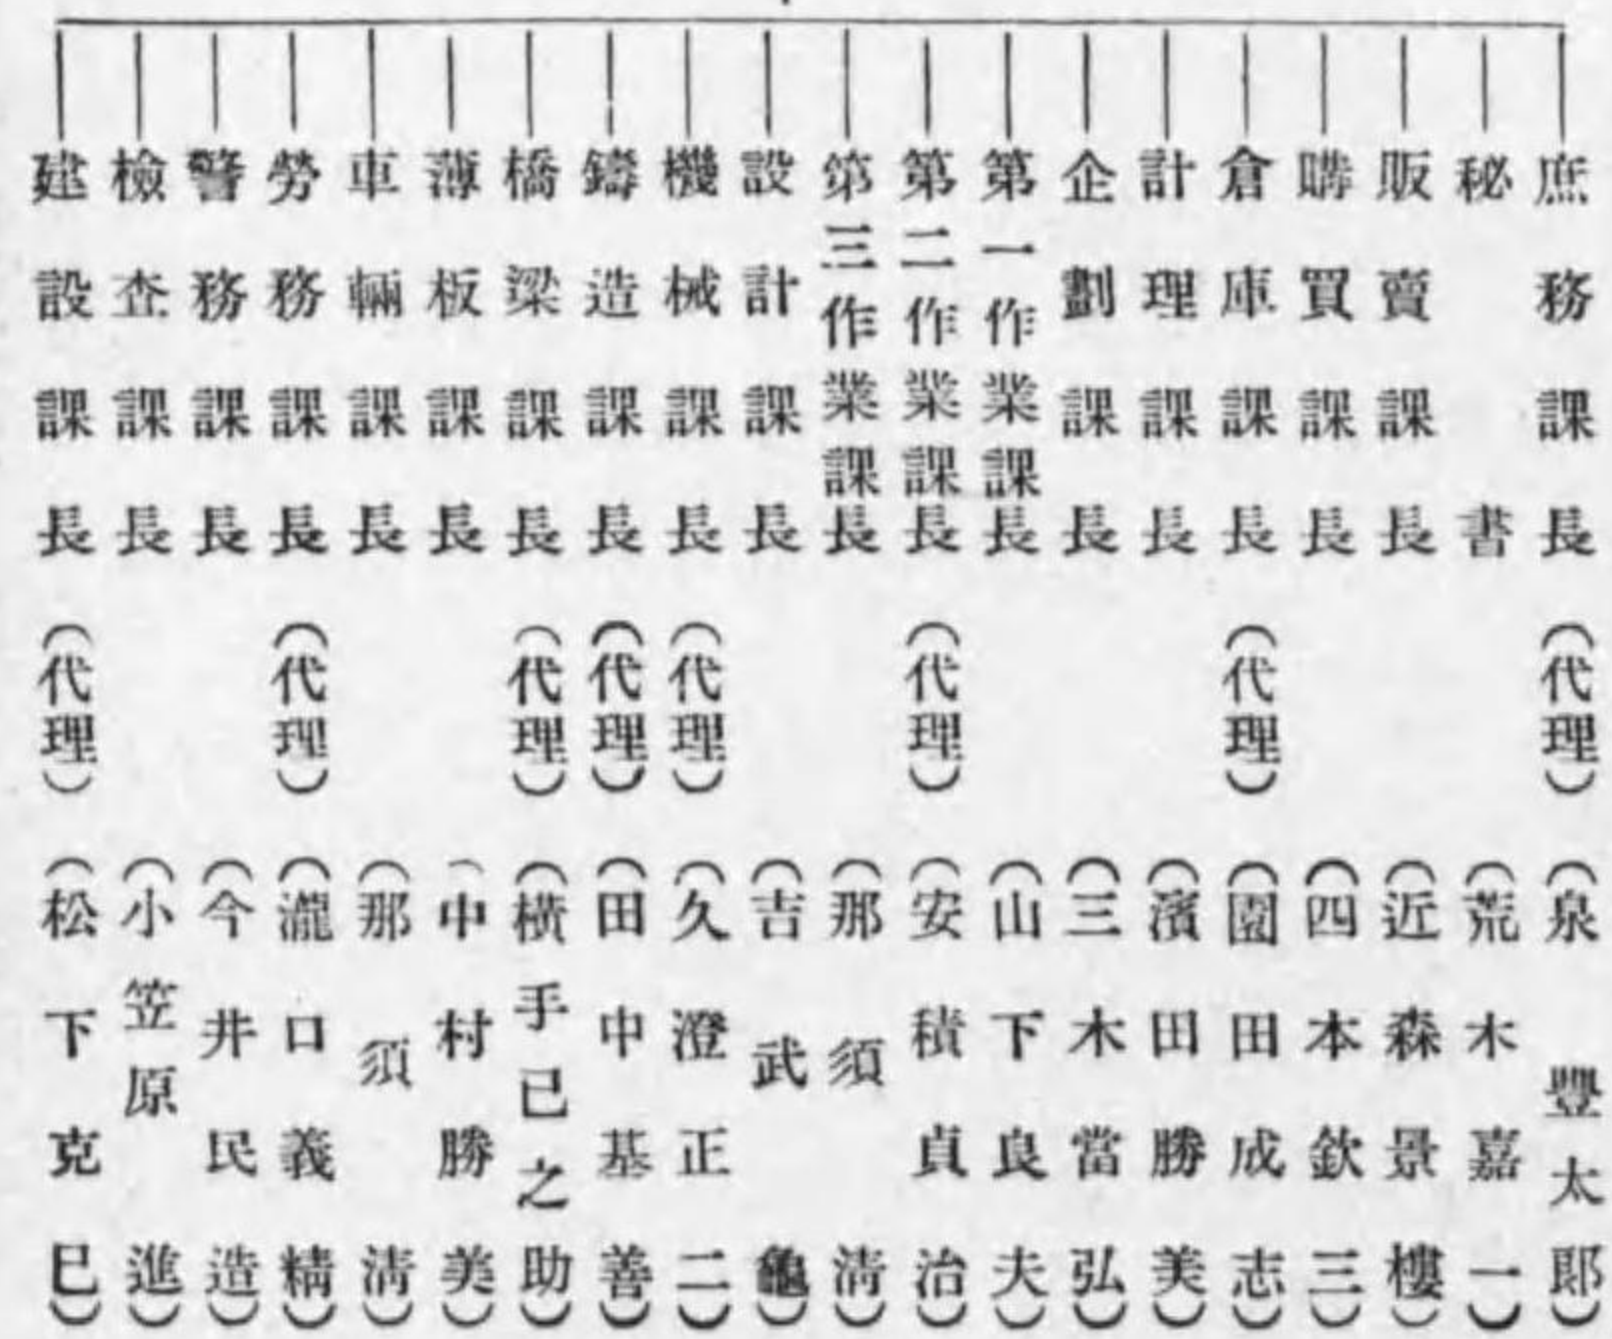 庶務課長（代理）（泉豐太郎）
秘書（荒木嘉一）
販賣課長（近森景樓）
購買課長（四本欽三）
倉庫課長（代理）（園田成志）
計理課長（濱田勝美）
企劃課長（三木當弘）
第一作業課長（山下良夫）
第二作業課長（代理）（安積貞治）
第三作業課長（那須淸）
設計課長（吉武龜）
機械課長（代理）（久澄正二）
鑄造課長（代理）（田中基善）
橋梁課長（代理）（橫手已之助）
薄板課長（中村勝美）
車輛課長（那須淸）
勞務課長（代理）（瀧口義精）
警務課長（今井民造）
檢查課長（小笠原進）
建設課長（代理）（松下克巳）